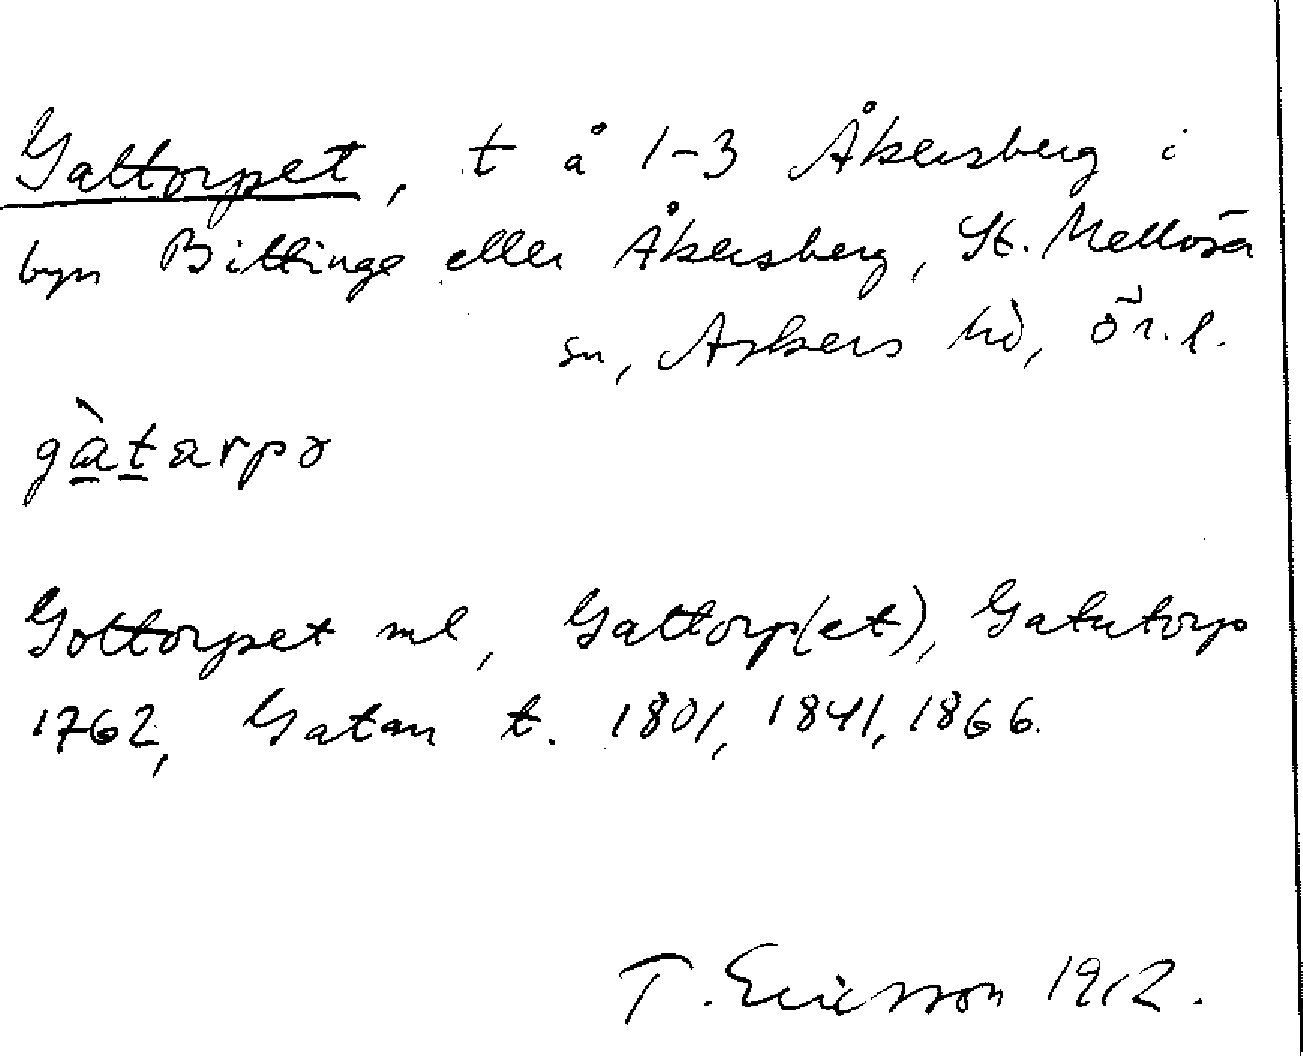 Gattorpet, t å 1-3 Åkersberg i
byn Bittinge eller Åkersberg, St. Mellösa
sn, Askers hd, Ör.l.
gàtarpə
Gottorpet ml, Gattorp(et), Gatutorp
1762, Gatan t. 1801, 1841, 1866.
T. Ericsson 1912.